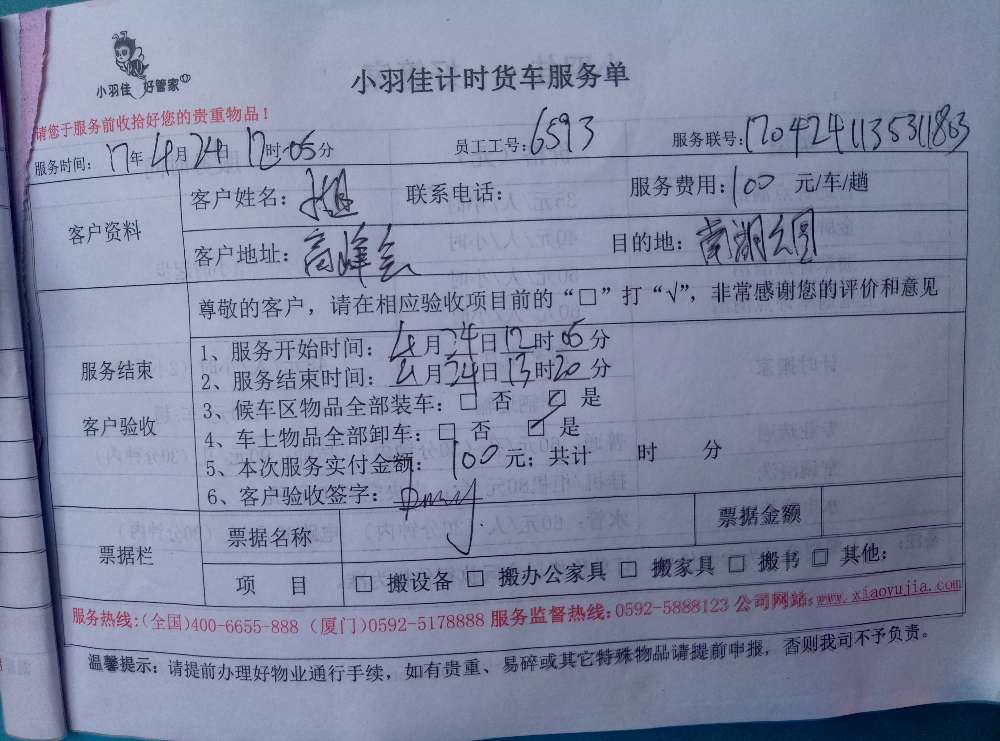 小羽佳 好管家
小羽佳计时货车服务单
请您于服务前收拾好您的贵重物品！
服务时间：17年4月24日12时05分 员工工号：6593 服务联号：170424113531 1863
客户资料
客户姓名： 联系电话： 服务费用：100 元/车/趟
客户地址：高峰会 目的地：南湖公园
服务结束
客户验收
尊敬的客户，请在相应验收项目前的“□”打“√”，非常感谢您的评价和意见
1、服务开始时间：4月24日12时05分
2、服务结束时间：4月24日13时20分
3、候车区物品全部装车：□ 否 ☑ 是
4、车上物品全部卸车：□ 否 ☑ 是
5、本次服务实付金额：100元；共计 时 分
6、客户验收签字：
票据栏
票据名称 票据金额
项 目 □ 搬设备 □ 搬办公家具 □ 搬家具 □ 搬书 □ 其他：
服务热线：(全国)400-6655-888 (厦门)0592-5178888 服务监督热线：0592-5888123 公司网站：www.xiaoyujia.com
温馨提示：请提前办理好物业通行手续，如有贵重、易碎或其它特殊物品请提前申报，否则我司不予负责。